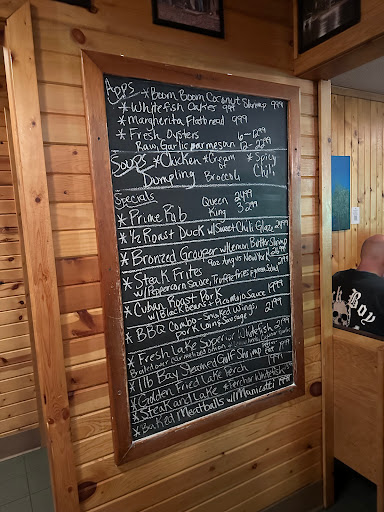 Apps * Boom Boom Coconut Shrimp 9.99
* Whitefish Cakes 9.99
* Margherita Flatbread 9.99
* Fresh Oysters 6-12.99
Raw, Garlic parmesan 12-22.99
Soups * Chicken * Cream * Spicy
Dumpling of Broccoli Chili
Specials
* Prime Rib Queen 24.99
King 32.99
* 1/2 Roast Duck w/Sweet Chili Glaze 21.99
* Bronzed Grouper w/Lemon Butter Shrimp
* Steak Frites 9oz Angus New York
w/Peppercorn Sauce, Truffle Fries + green Salad
* Cuban Roast Pork
w/Black Beans + Sauce 19.99
* BBQ Combo - Smoked Wings,
Pork Loin + Sausage 21.99
* Fresh Lake Superior Whitefish 21.99
* 1 lb Bay Steamed Gulf Shrimp
* Golden Fried Lake Perch 19.99
* Steak and Lake
* Baked Meatballs w/Manicotti
Boy